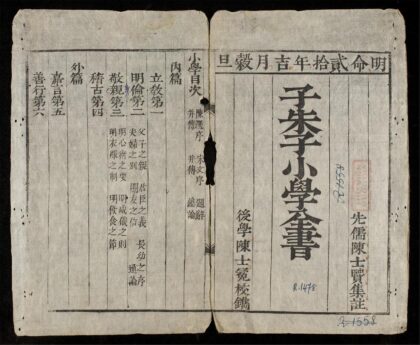 明命貳拾年吉月穀旦
先儒陳士賢集註
子朱子小學全書
後學陳士冕校鐫
R.1475
R.1558
小學目次
陳選序 宋文序 題辭
并傳 并傳 總論
内篇
立教第一
明倫第二
父子之親 君臣之義 長幼之序
夫婦之別 朋友之信 通論
敬親第三
明心術之要 明威儀之則
明衣服之制 明飲食之節
稽古第四
外篇
嘉言第五
善行第六